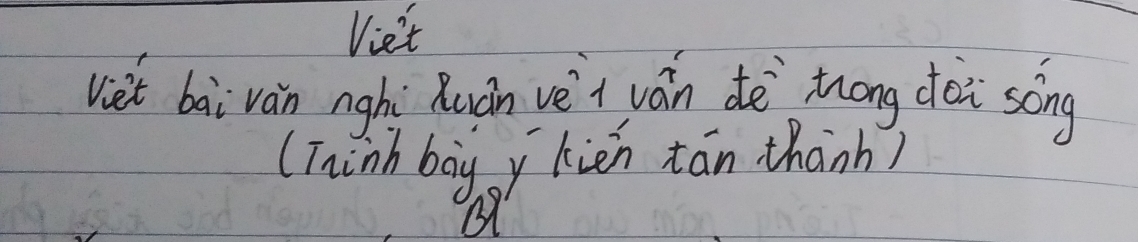 Viết
Viết bài văn nghị luận về 1 vấn đề trong đời sống
(Trình bày ý kiến tán thành)